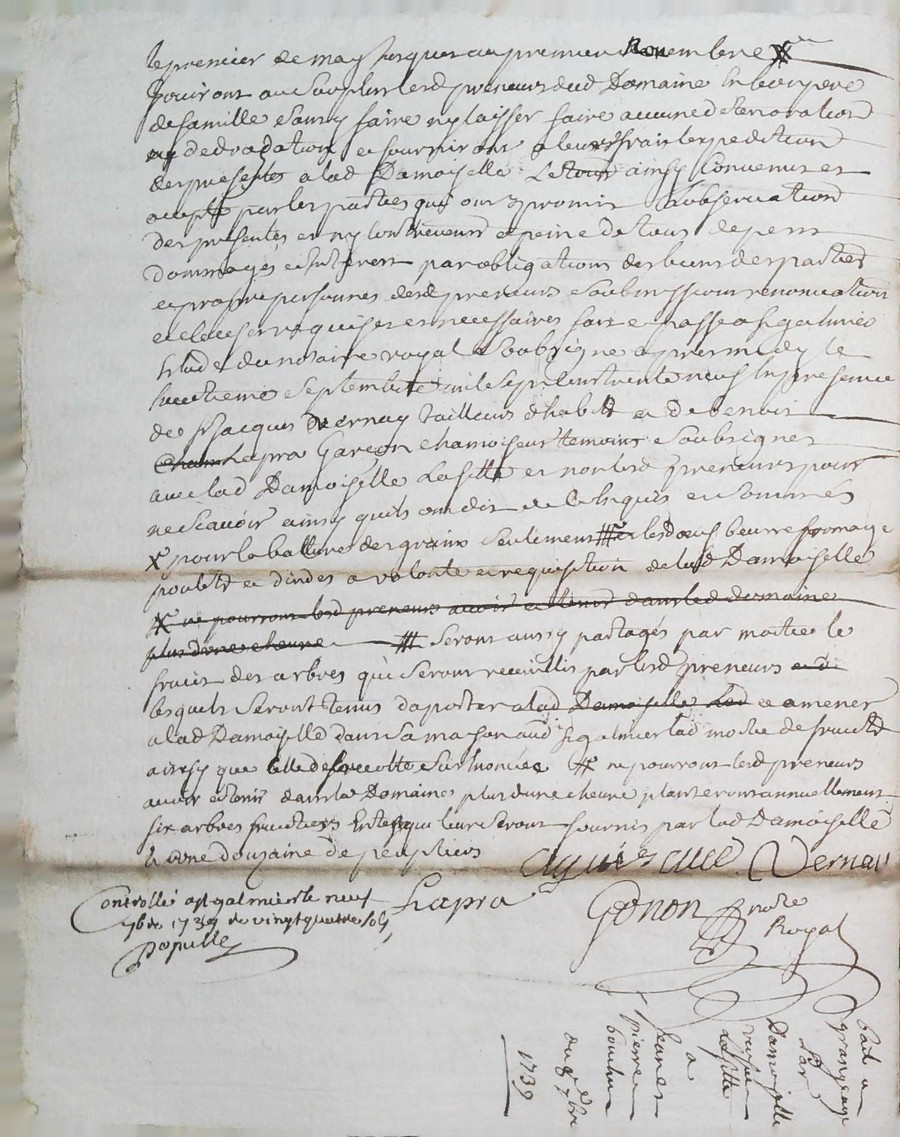 le premier de may jusques au premier Novembre X
jouiront au surplus lesd preneurs dud Domaine en bon pere
de famille sans y faire ny laisser faire aucune deterioration
ny degradation et fourniront a leurs frais lexpedition
des presentes a lad Damoiselle Le tout ainsy Convenus et
accepté par les parties qui ont promis Lobservation
des presentes et ny contrevenir a peine de tous depens
dommages et interest par obligations des biens des parties
et propres personnes desd preneurs soubmissions renonciation
et clauses requises et necessaires fait et passé a St galmier
Etude du notaire royal soubsigné apres midy le
huictieme Septembre mil sept cent trente neuf en presence
de Sr jacques Vernay tailleurs dhabit et de benoit
Lapra Garçon chamoiseur temoins soubsignes
avec lad Damoiselle et non lesd preneurs pour
ne scavoir ainsy quils ont dit de ce Enquis et sommés
X pour la batture des grains seulement et les oeufs beurre fromage
poulets et dindes a volonté et requisition de lad Damoiselle
X ne pourront lesd preneurs avoir et tenir dans led domaine
plus dune chevre seront aussy partagés par moitié le
fruit des arbres qui seront recuillis par lesd preneurs
lesquels seront tenus daporter a lad Damoiselle et amener
a lad Damoiselle dans sa maison aud St galmier lad moitié de fruits
ainsy que celle des recolte susenoncée ne pourront lesd preneurs
avoir et tenir dans led Domaine plus dune chevre planteront annuellement
six arbres fruitiers Entes qui leurs seront fournis par lad Damoiselle
et une douzaine de peupliers Vernai
Controllé a St galmier le neuf Lapra Gonon nore
7bre 1739 vingt quatre sols Royal
Populle
bail a
grangeage
par
Damoiselle
a
Jeanes
pierre
du 8 7bre
1739